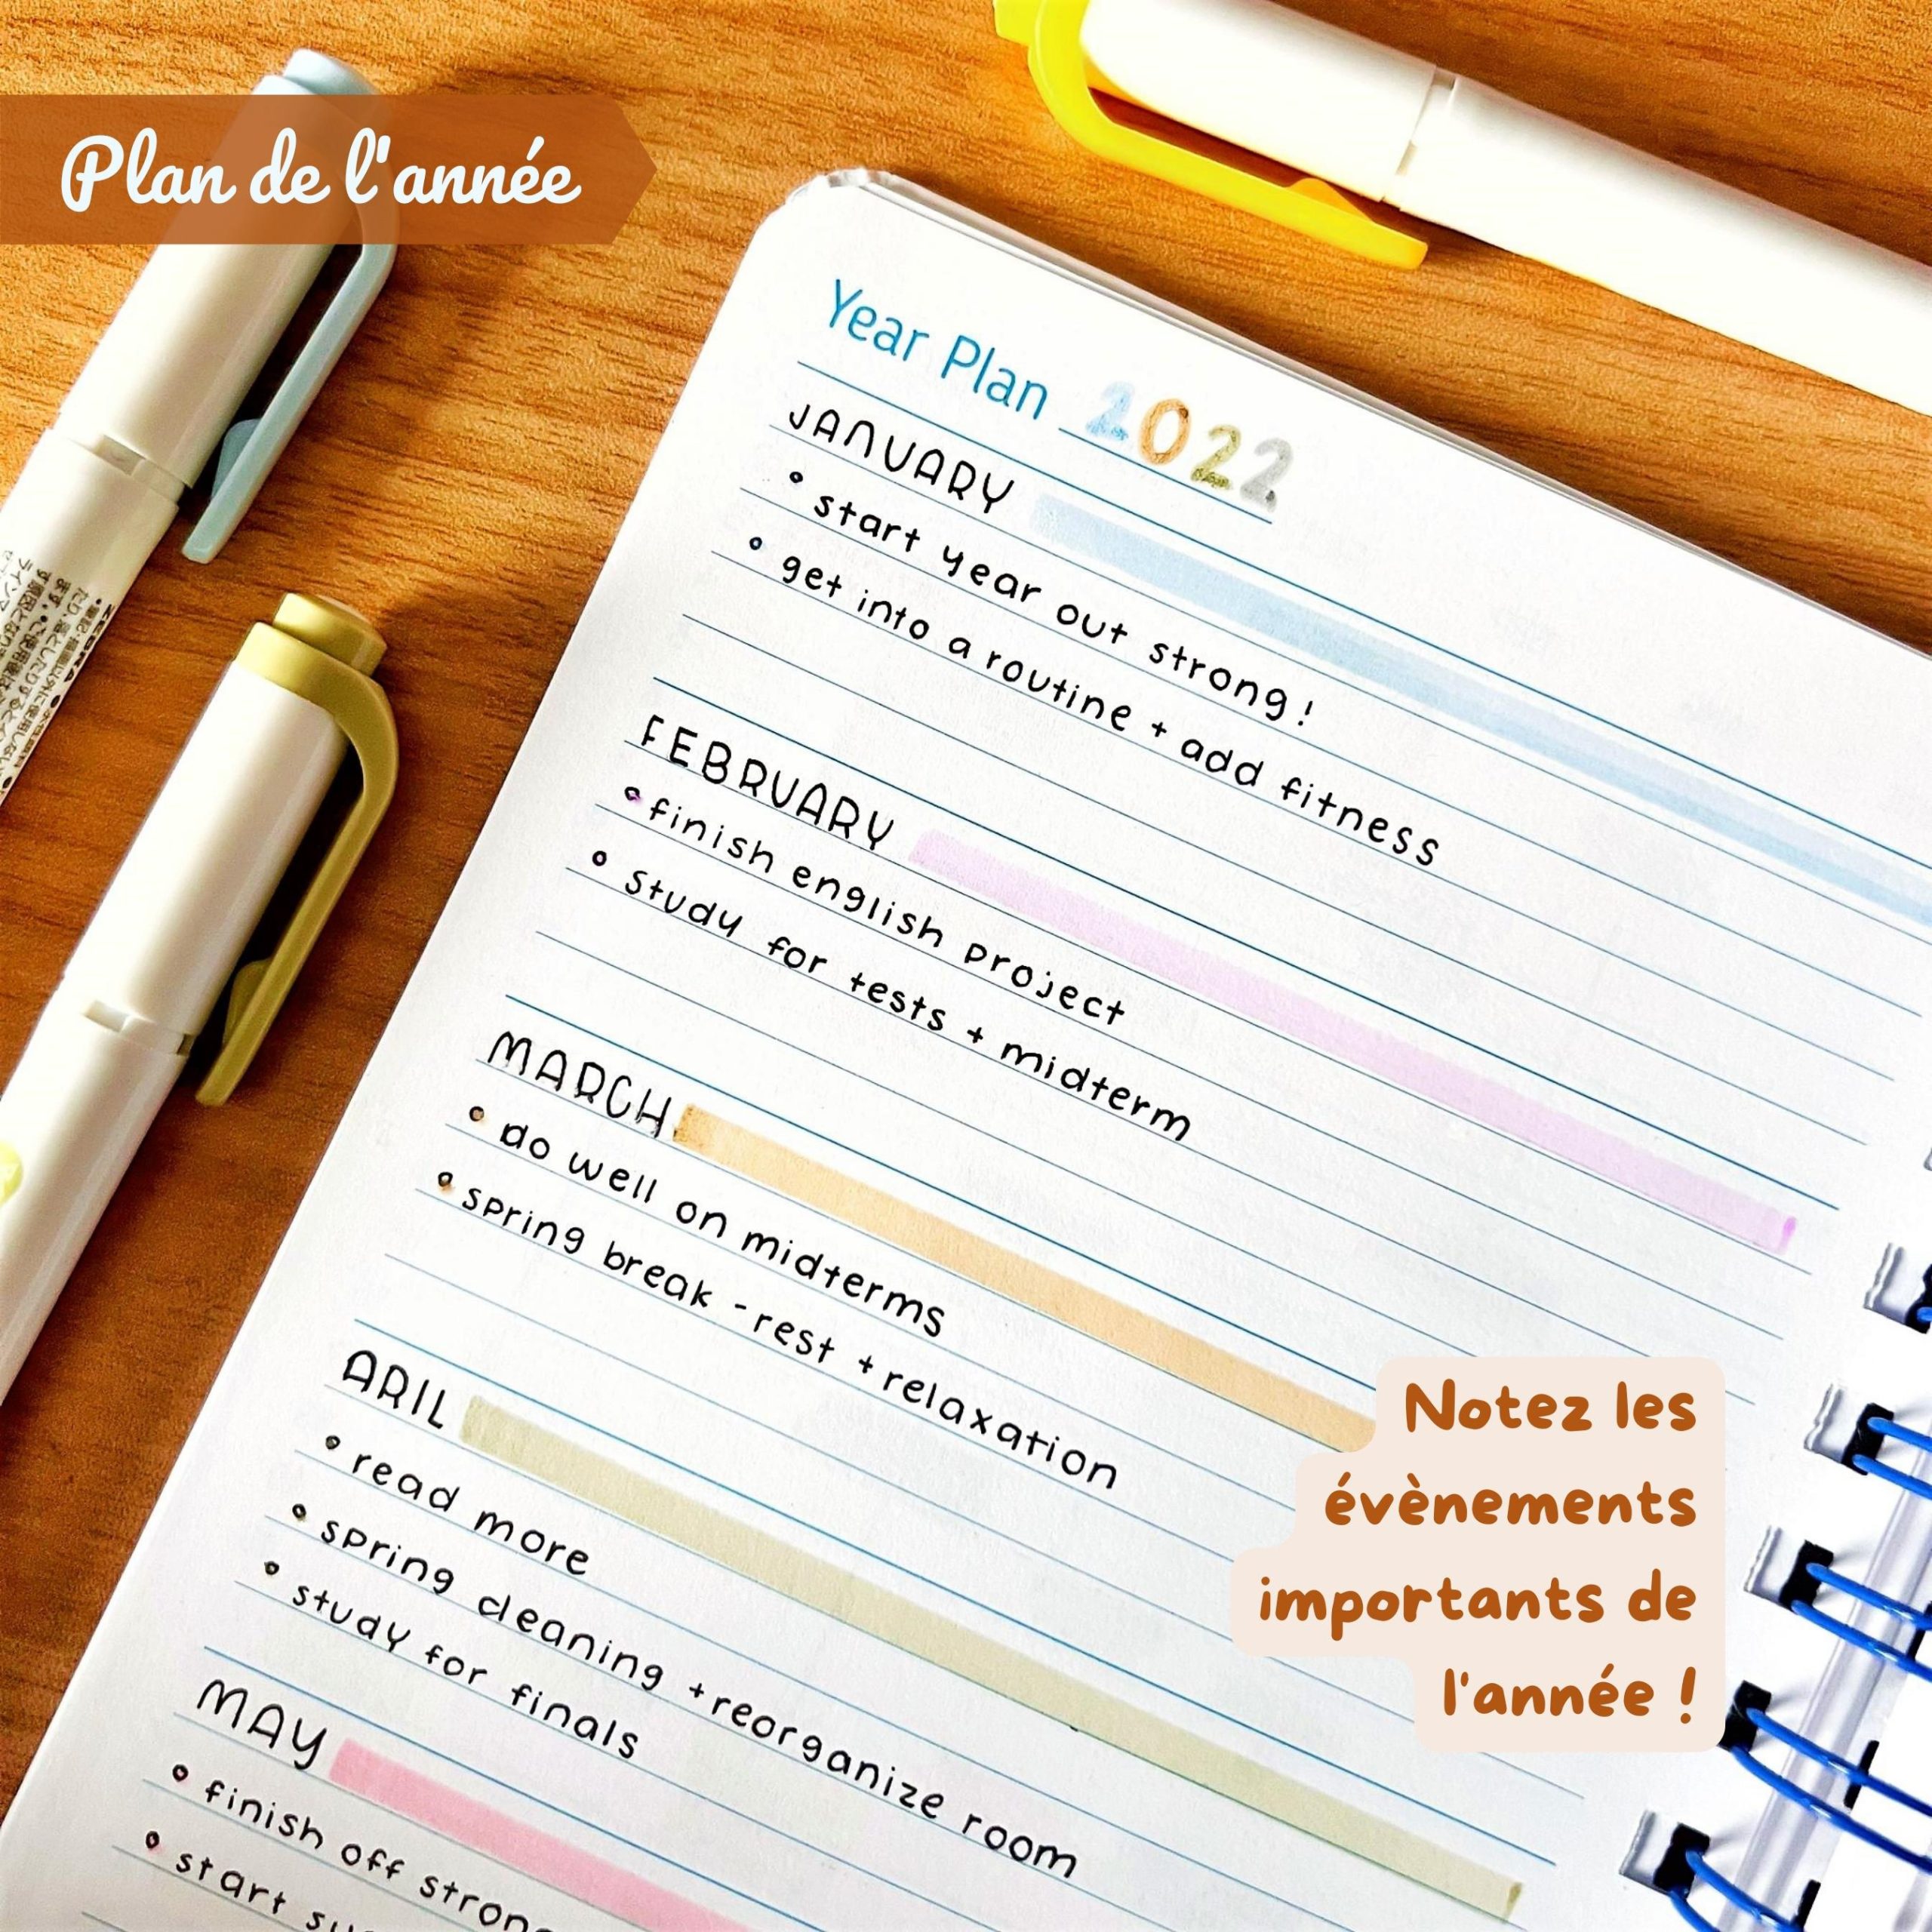 Plan de l'année
Year Plan 2022
JANUARY
• start year out strong!
• get into a routine + add fitness
FEBRUARY
• finish english project
• study for tests + midterm
MARCH
• do well on midterms
• spring break - rest + relaxation
ARIL
• read more
• spring cleaning + reorganize room
• study for finals
MAY
• finish off
• start
Notez les
évènements
importants de
l'année !
ZEBRA